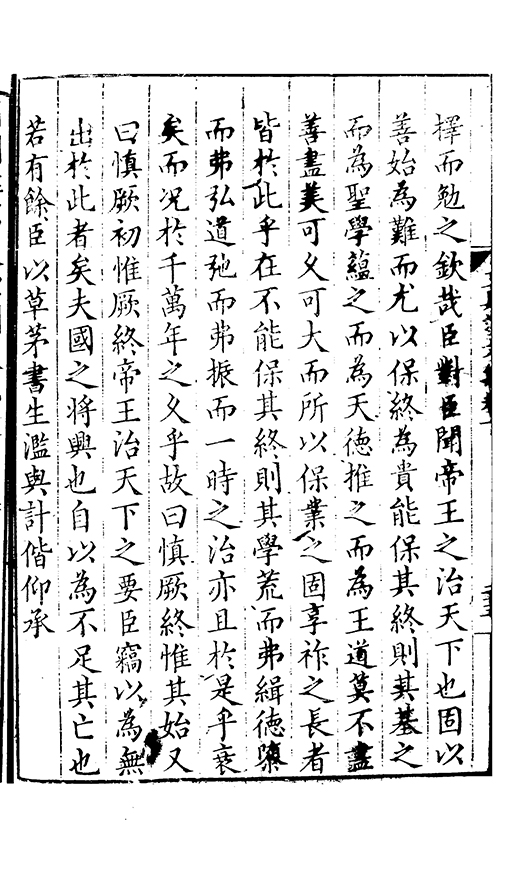 擇而勉之欽哉臣對臣聞帝王之治天下也固以
善始為難而尤以保終為貴能保其終則其基之
而為聖學蘊之而為天德推之而為王道莫不盡
善盡美可久可大而所以保業之固享祚之長者
皆於此乎在不能保其終則其學荒而弗緝德隳
而弗弘道弛而弗振而一時之治亦且於是乎衰
矣而况於千萬年之久乎故曰慎厥終惟其始又
曰慎厥初惟厥終帝王治天下之要臣竊以為無
出於此者矣夫國之將興也自以為不足其亡也
若有餘臣以草茅書生濫與計偕仰承